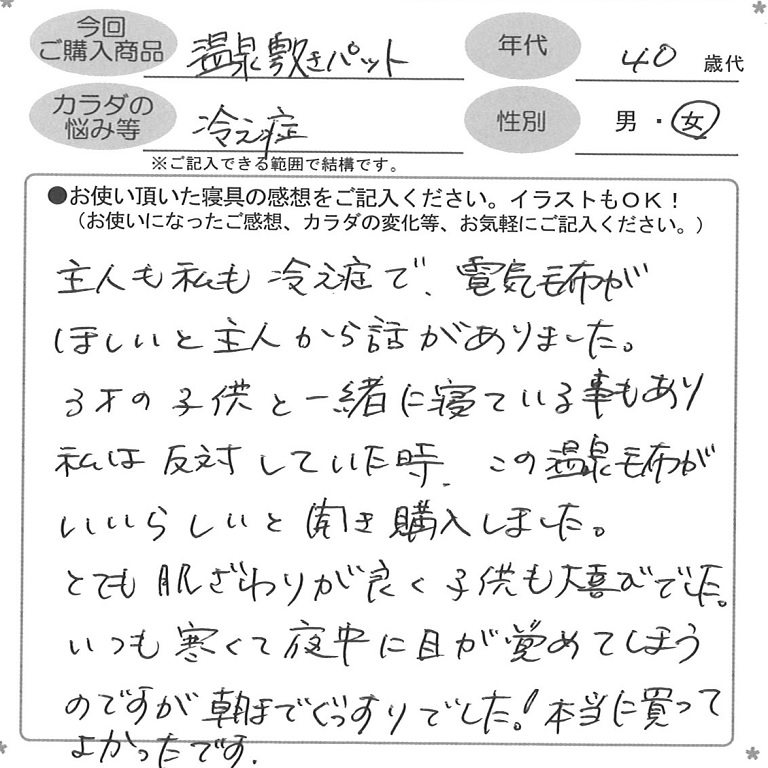 今回
ご購入商品
温泉敷きパット
年代
40 歳代
カラダの
悩み等
冷え症
性別
男 ・ 女
※ご記入できる範囲で結構です。
●お使い頂いた寝具の感想をご記入ください。イラストもOK!
（お使いになったご感想、カラダの変化等、お気軽にご記入ください。）
主人も私も冷え症で、電気毛布が
ほしいと主人から話がありました。
3才の子供と一緒に寝ている事もあり
私は反対していた時、この温泉毛布が
いいらしいと聞き購入しました。
とても肌ざわりが良く子供も大喜びでした。
いつも寒くて夜中に目が覚めてしまう
のですが朝までぐっすりでした!本当に買って
よかったです.